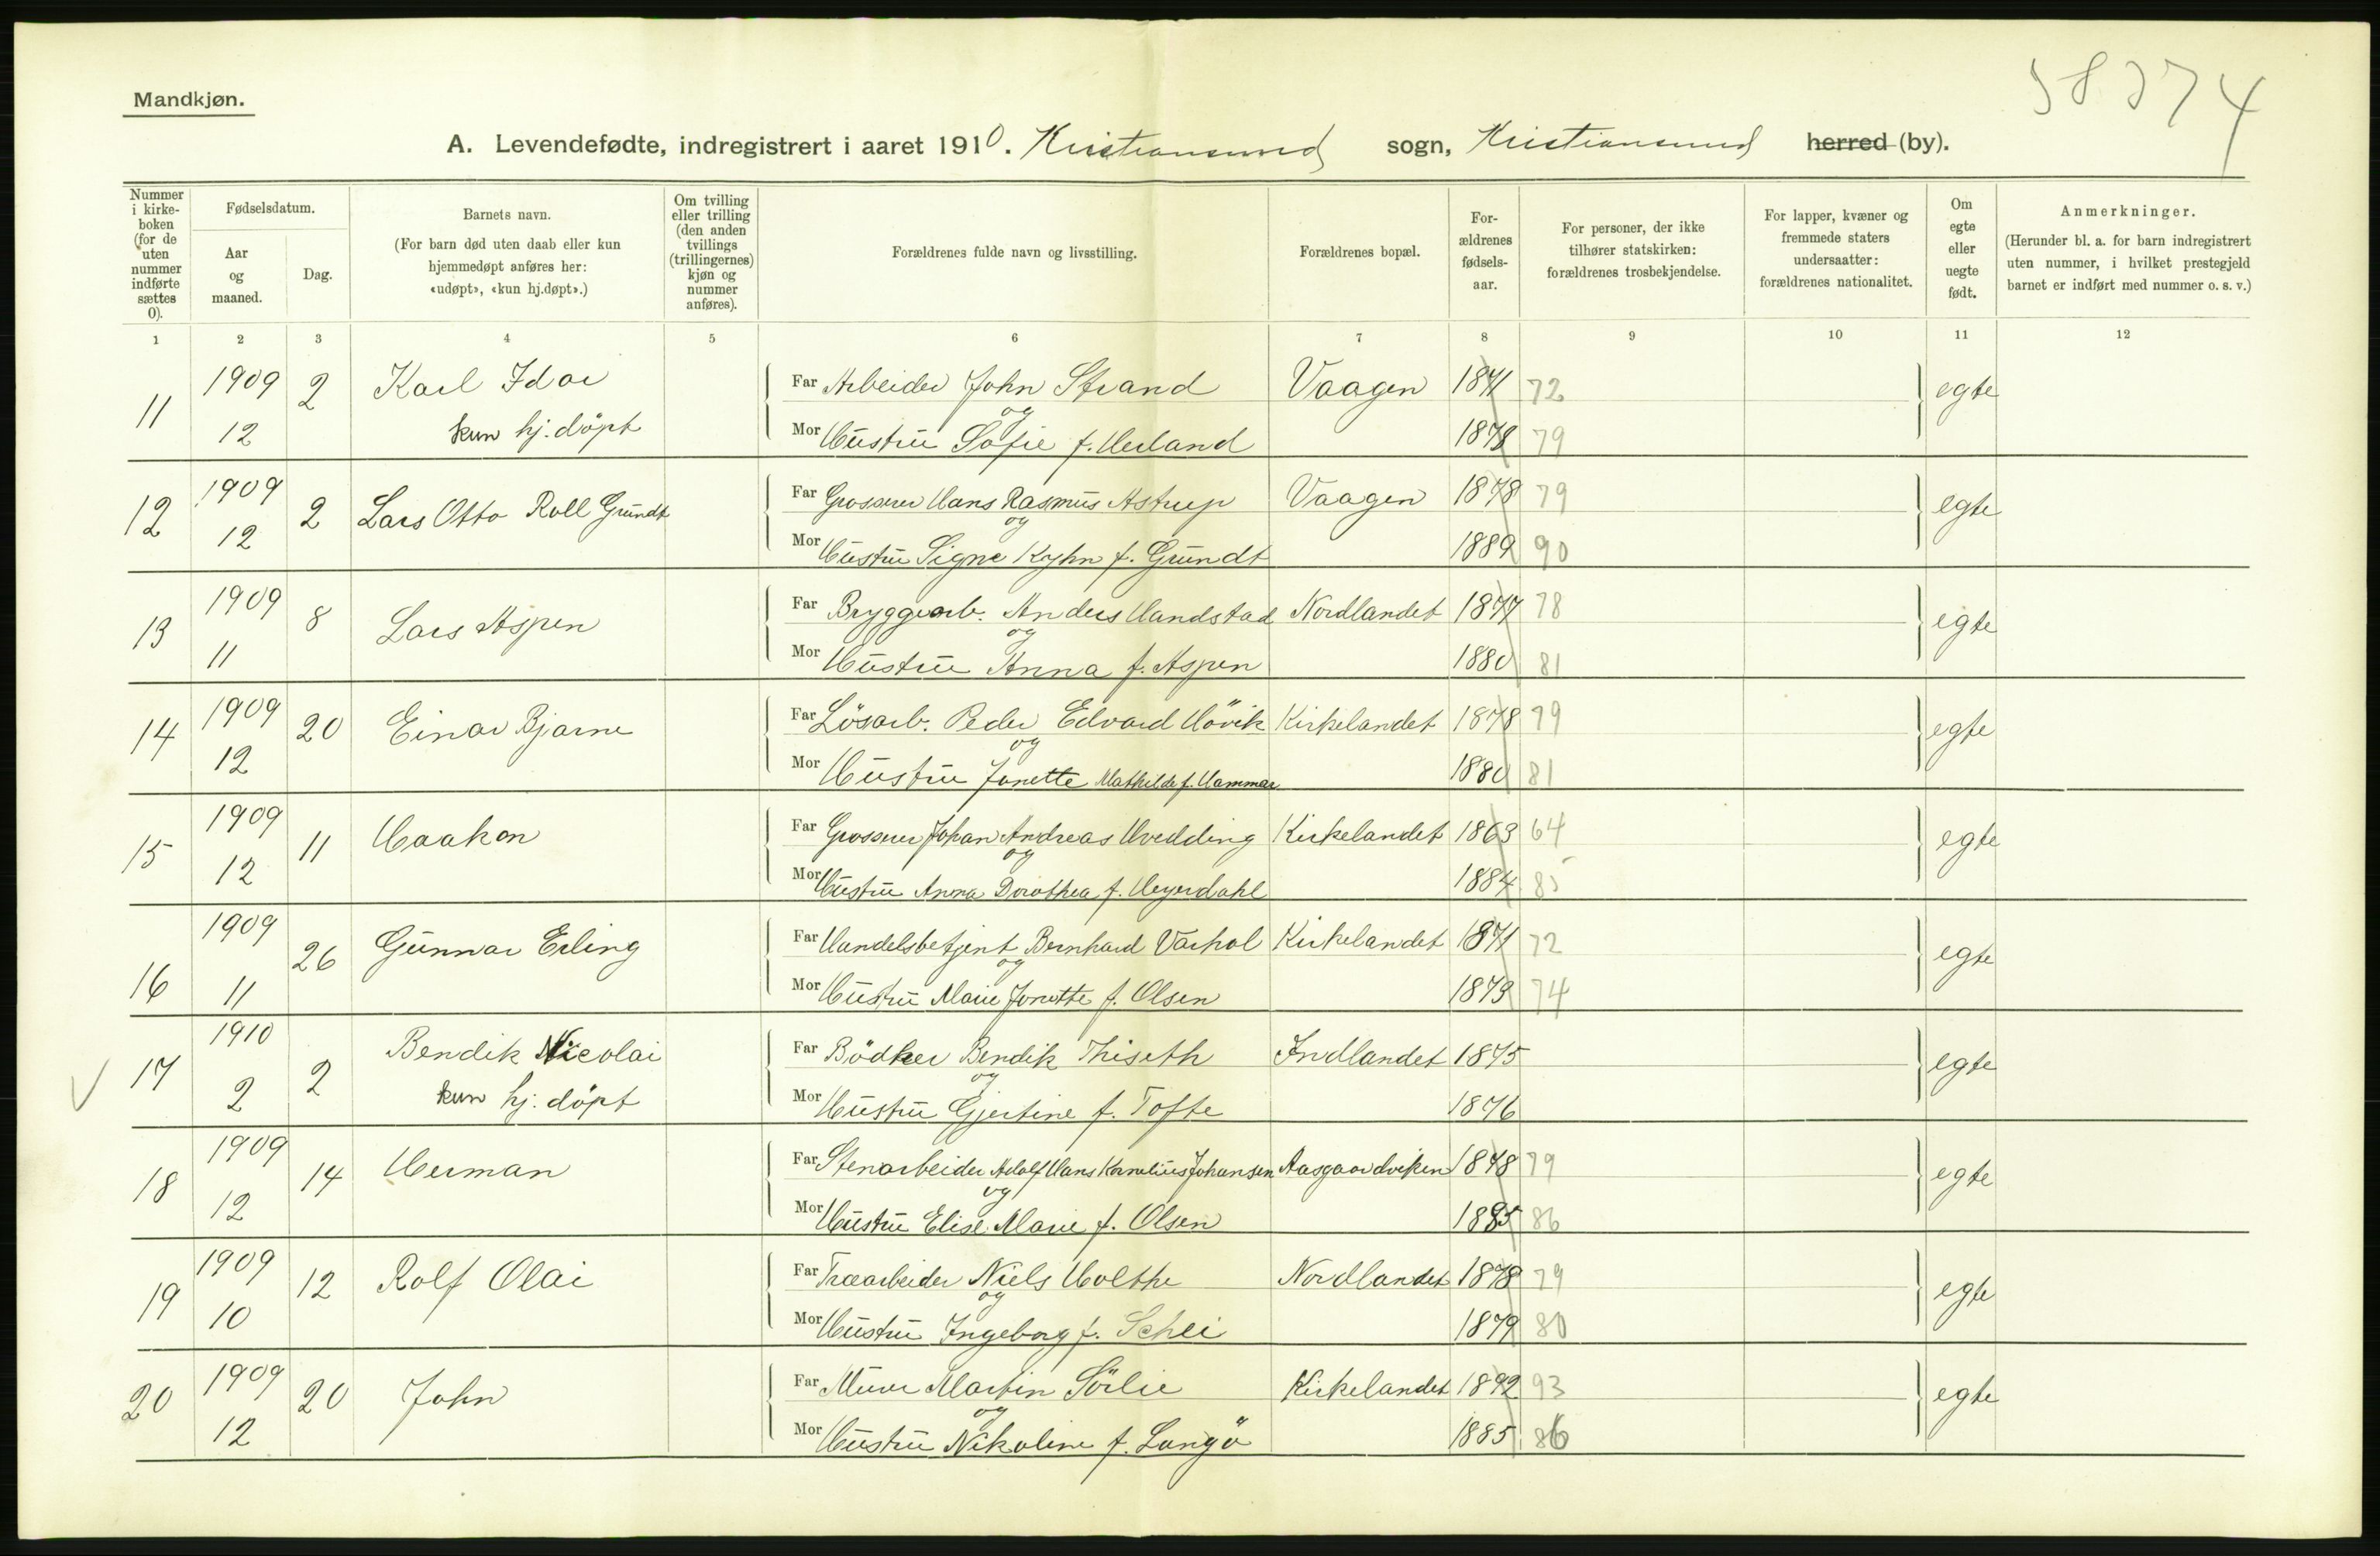 58374
Mandkjøn.
A. Levendefødte, indregistrert i aaret 1910. Kristiansund sogn, Kristiansund herred (by).
Nummer i kirke-boken (for de uten nummer indførte sættes 0).
Fødselsdatum.
Aar og maaned.
Dag.
Barnets navn.
(For barn død uten daab eller kun hjemmedøpt anføres her: «udøpt», «kun hj.døpt».)
Om tvilling eller trilling (den anden tvillings (trillingernes) kjøn og nummer anføres).
Forældrenes fulde navn og livsstilling.
Forældrenes bopæl.
For-ældrenes fødsels-aar.
For personer, der ikke tilhører statskirken: forældrenes trosbekjendelse.
For lapper, kvæner og fremmede staters undersaatter: forældrenes nationalitet.
Om egte eller uegte født.
Anmerkninger.
(Herunder bl. a. for barn indregistrert uten nummer, i hvilket prestegjeld barnet er indført med nummer o. s. v.)
1 2 3 4 5 6 7 8 9 10 11 12
11 1909 2 Karl Idar Far Arbeider John Strand Vaagen 1871 72 egte
og
12 kun hj. döpt Mor Hustru Sofie f. Herland 1878 79
12 1909 2 Lars Otto Roll Grundt Far Grosserer Hans Rasmus Astrup Vaagen 1878 79 egte
og
12 Mor Hustru Signe Kyhn f. Grundt 1889 90
13 1909 8 Lars Aspen Far Bryggearb. Anders Handstad Nordlandet 1877 78 egte
og
11 Mor Hustru Anna f. Aspen 1880 81
14 1909 20 Einar Bjarne Far Lösarb. Peder Edvard Hövik Kirkelandet 1878 79 egte
og
12 Mor Hustru Jonette Mathilde f. Hammer 1880 81
15 1909 11 Haakon Far Grosserer Johan Andreas Hvedding Kirkelandet 1863 64 egte
og
12 Mor Hustru Anna Dorothea f. Heyerdahl 1884 85
16 1909 26 Gunnar Erling Far Handelsbetjent Bernhard Varhol Kirkelandet 1871 72 egte
og
11 Mor Hustru Marie Jonette f. Olsen 1873 74
17 1910 2 Bendik Nicolai Far Bödker Bendik Thiseth Indlandet 1875 egte
og
2 kun hj. döpt Mor Hustru Gjertine f. Tofte 1876
18 1909 14 Herman Far Stenarbeider Adolf Hans Kornelius Johansen Aasgaardviken 1878 79 egte
og
12 Mor Hustru Elise Marie f. Olsen 1885 86
19 1909 12 Rolf Olai Far Træarbeider Niels Holthe Nordlandet 1878 79 egte
og
10 Mor Hustru Ingeborg f. Schei 1879 80
20 1909 20 John Far Murer Martin Sörlie Kirkelandet 1892 93 egte
og
12 Mor Hustru Nikoline f. Langö 1885 86